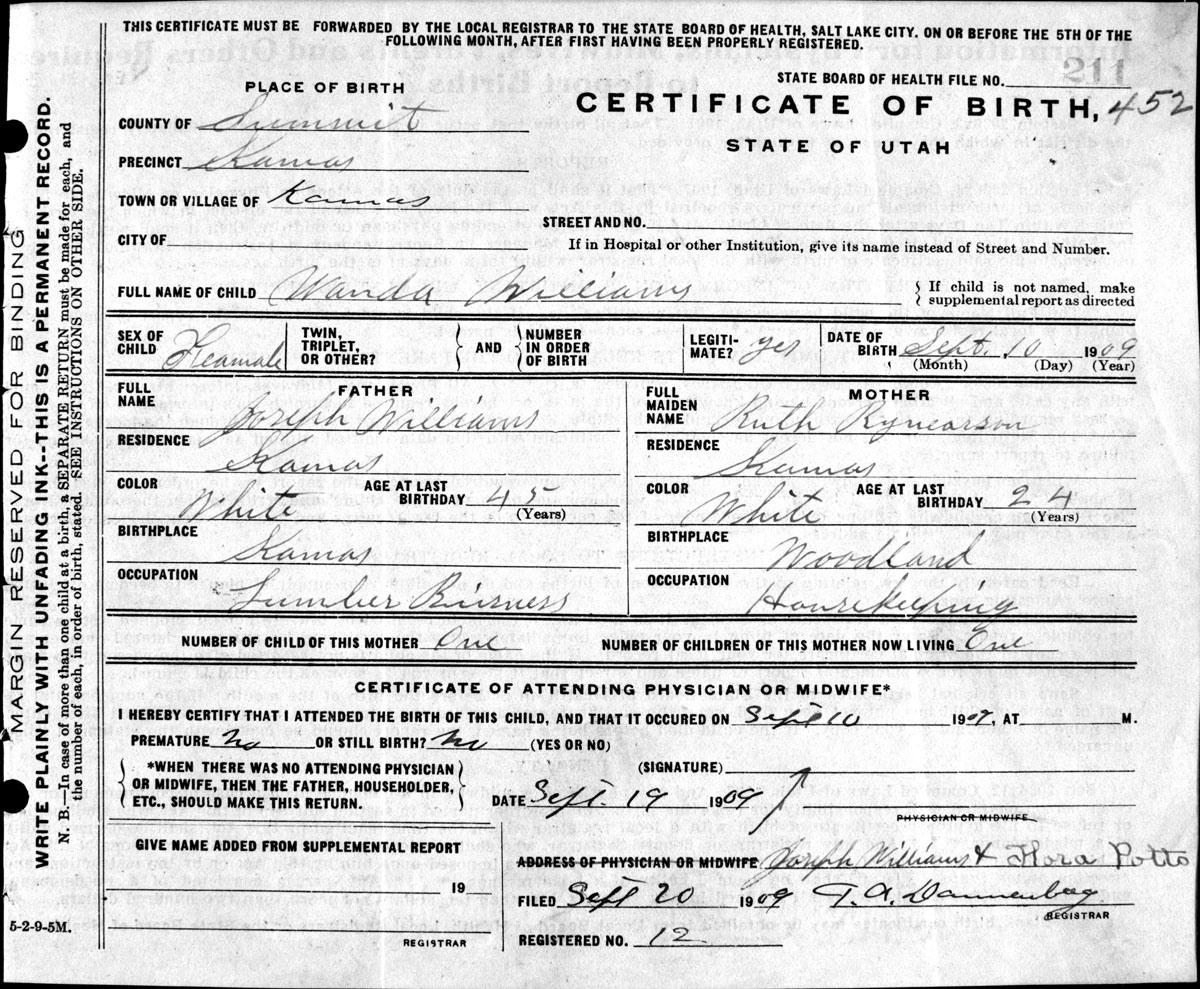 THIS CERTIFICATE MUST BE FORWARDED BY THE LOCAL REGISTRAR TO THE STATE BOARD OF HEALTH, SALT LAKE CITY. ON OR BEFORE THE 5TH OF THE
FOLLOWING MONTH, AFTER FIRST HAVING BEEN PROPERLY REGISTERED.
211
STATE BOARD OF HEALTH FILE NO.
PLACE OF BIRTH
CERTIFICATE OF BIRTH, 452
STATE OF UTAH
COUNTY OF Summit
PRECINCT Kamas
TOWN OR VILLAGE OF Kamas
STREET AND NO.
CITY OF
If in Hospital or other Institution, give its name instead of Street and Number.
FULL NAME OF CHILD Wanda Williams
{ If child is not named, make
supplemental report as directed
SEX OF CHILD Feamale
TWIN, TRIPLET, OR OTHER?
{ AND { NUMBER IN ORDER OF BIRTH
LEGITIMATE? yes
DATE OF BIRTH Sept. 10 1909
(Month) (Day) (Year)
FATHER
FULL NAME Joseph Williams
RESIDENCE
Kamas
COLOR White
AGE AT LAST BIRTHDAY 43
(Years)
BIRTHPLACE Kamas
OCCUPATION
Lumber Buisness
MOTHER
FULL MAIDEN NAME Ruth Rynearson
RESIDENCE
Kamas
COLOR White
AGE AT LAST BIRTHDAY 24
(Years)
BIRTHPLACE Woodland
OCCUPATION
Housekeeping
NUMBER OF CHILD OF THIS MOTHER One NUMBER OF CHILDREN OF THIS MOTHER NOW LIVING One
CERTIFICATE OF ATTENDING PHYSICIAN OR MIDWIFE*
I HEREBY CERTIFY THAT I ATTENDED THE BIRTH OF THIS CHILD, AND THAT IT OCCURED ON Sept 10 1909, AT M.
PREMATURE? No OR STILL BIRTH? No (YES OR NO)
*WHEN THERE WAS NO ATTENDING PHYSICIAN
OR MIDWIFE, THEN THE FATHER, HOUSEHOLDER,
ETC., SHOULD MAKE THIS RETURN.
(SIGNATURE)
DATE Sept. 19 1909
PHYSICIAN OR MIDWIFE
GIVE NAME ADDED FROM SUPPLEMENTAL REPORT
19
REGISTRAR
ADDRESS OF PHYSICIAN OR MIDWIFE Joseph Williams & Flora Potts
FILED Sept 20 1909 T. A. Dannenberg
REGISTRAR
REGISTERED NO. 12
MARGIN RESERVED FOR BINDING
WRITE PLAINLY WITH UNFADING INK--THIS IS A PERMANENT RECORD.
N. B.—In case of more than one child at a birth, a SEPARATE RETURN must be made for each, and
the number of each, in order of birth, stated. SEE INSTRUCTIONS ON OTHER SIDE.
5-2-9-5M.